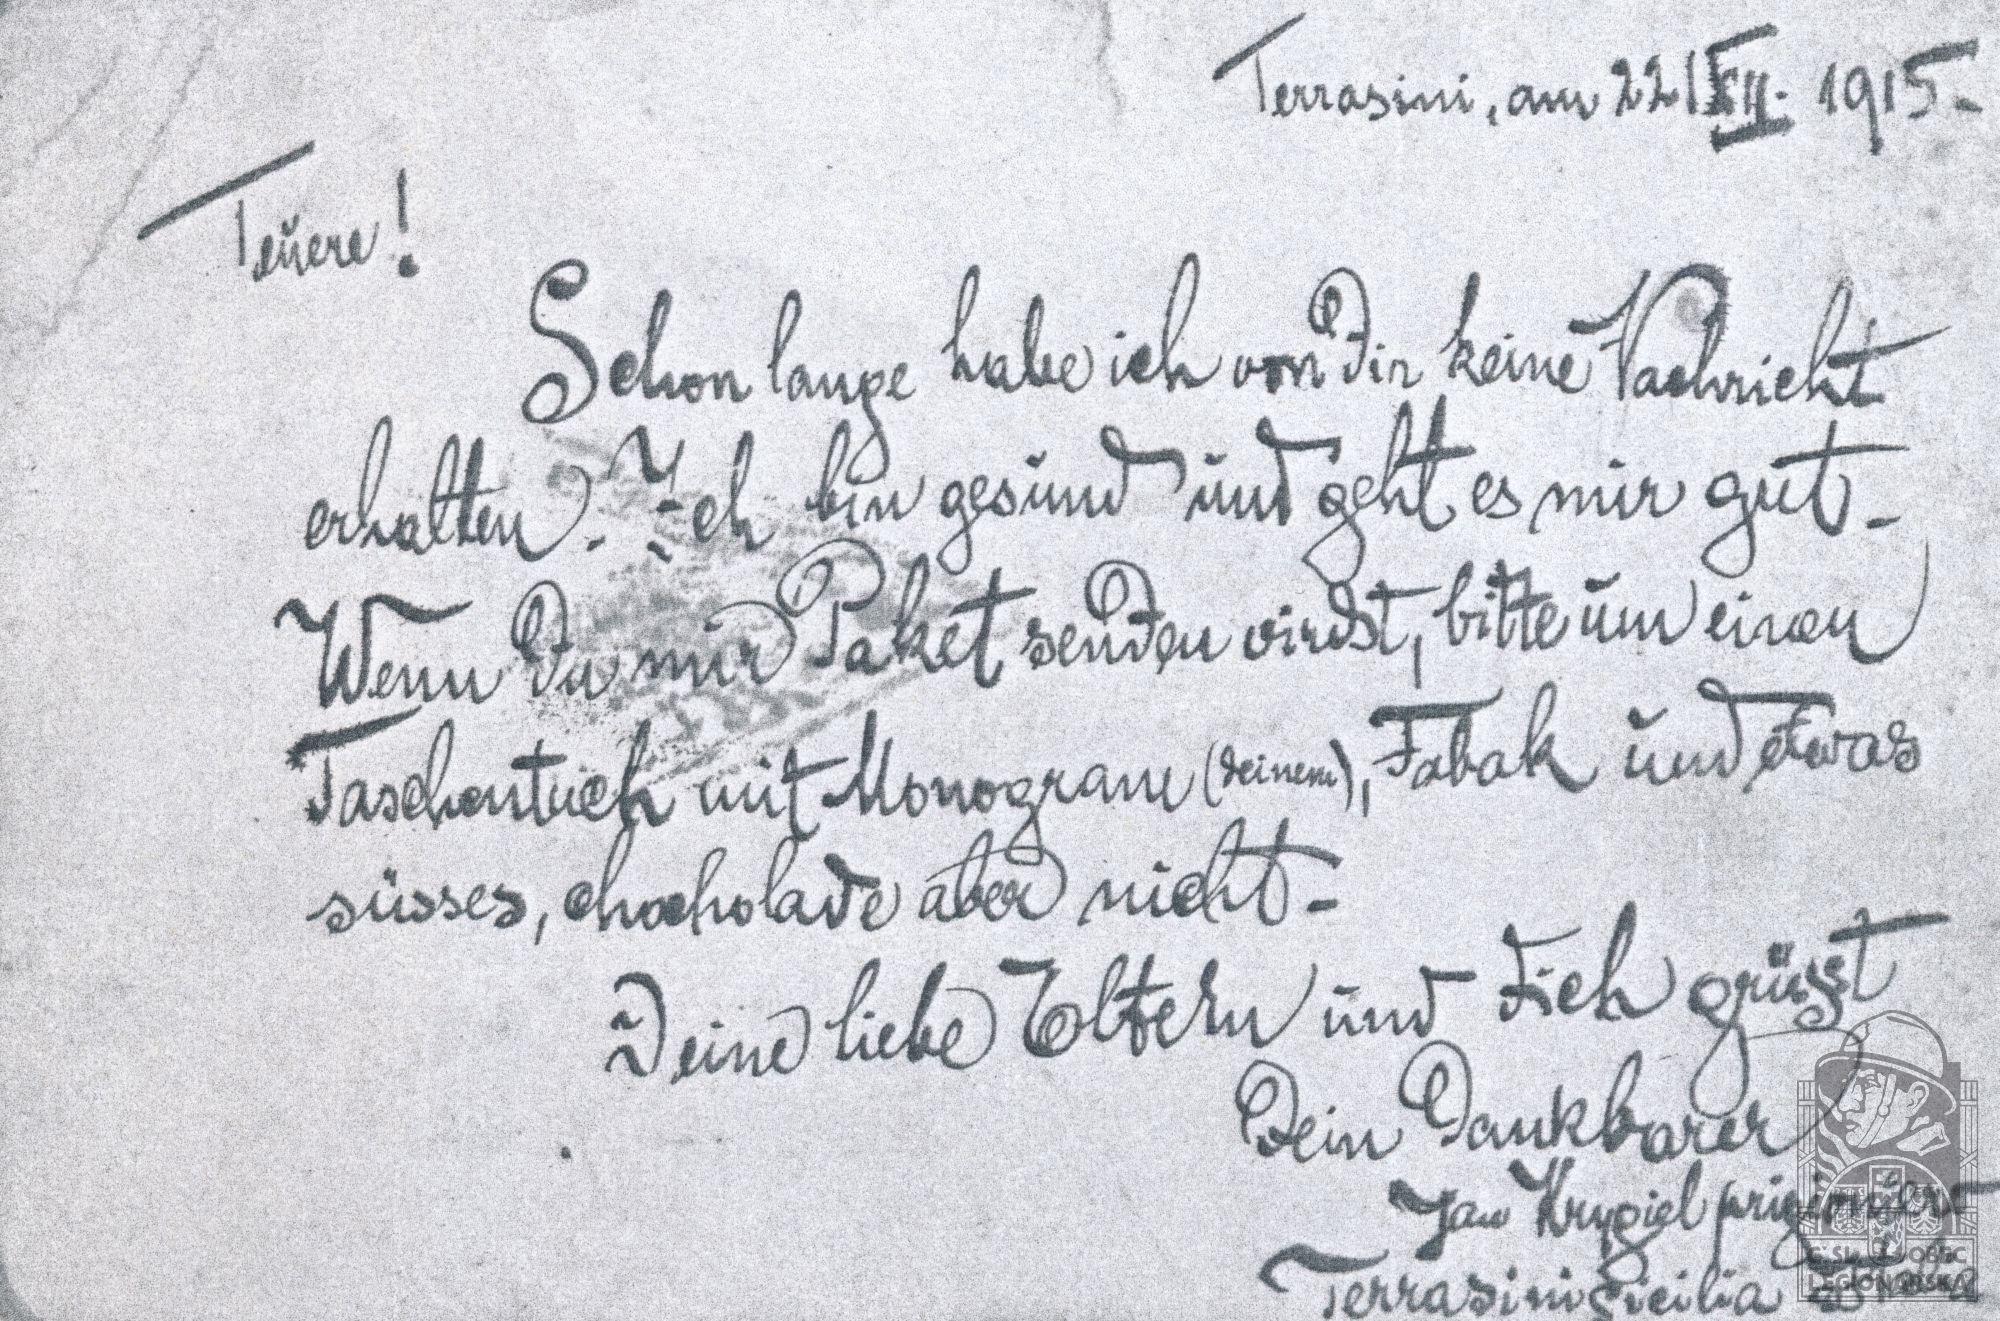 Terrasini, am 22/XII. 1915.-
Teŭere!
Schon lange habe ich von Dir keine Nachricht
erhalten. Ich bin gesŭnd ŭnd geht es mir gut.-
Wenn Du mir Paket senden wirdst, bitte ŭm einen
Taschentuch mit Monogram (deinem), Tabak ŭnd etwas
süsses, chocholade aber nicht.-
Deine liebe Eltern ŭnd Dich grüsst
Dein Dankbarer
Jan Krygiel
Terrasini Sicilia
ČSL. OBEC
LEGIONÁŘSKÁ